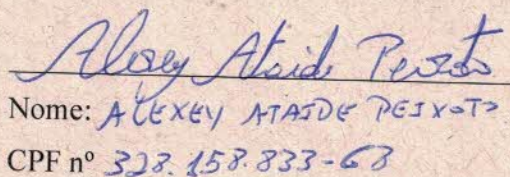 Alexey Ataide Peixoto
Nome: ALEXEY ATAIDE PEIXOTO
CPF nº 328.158.833-68